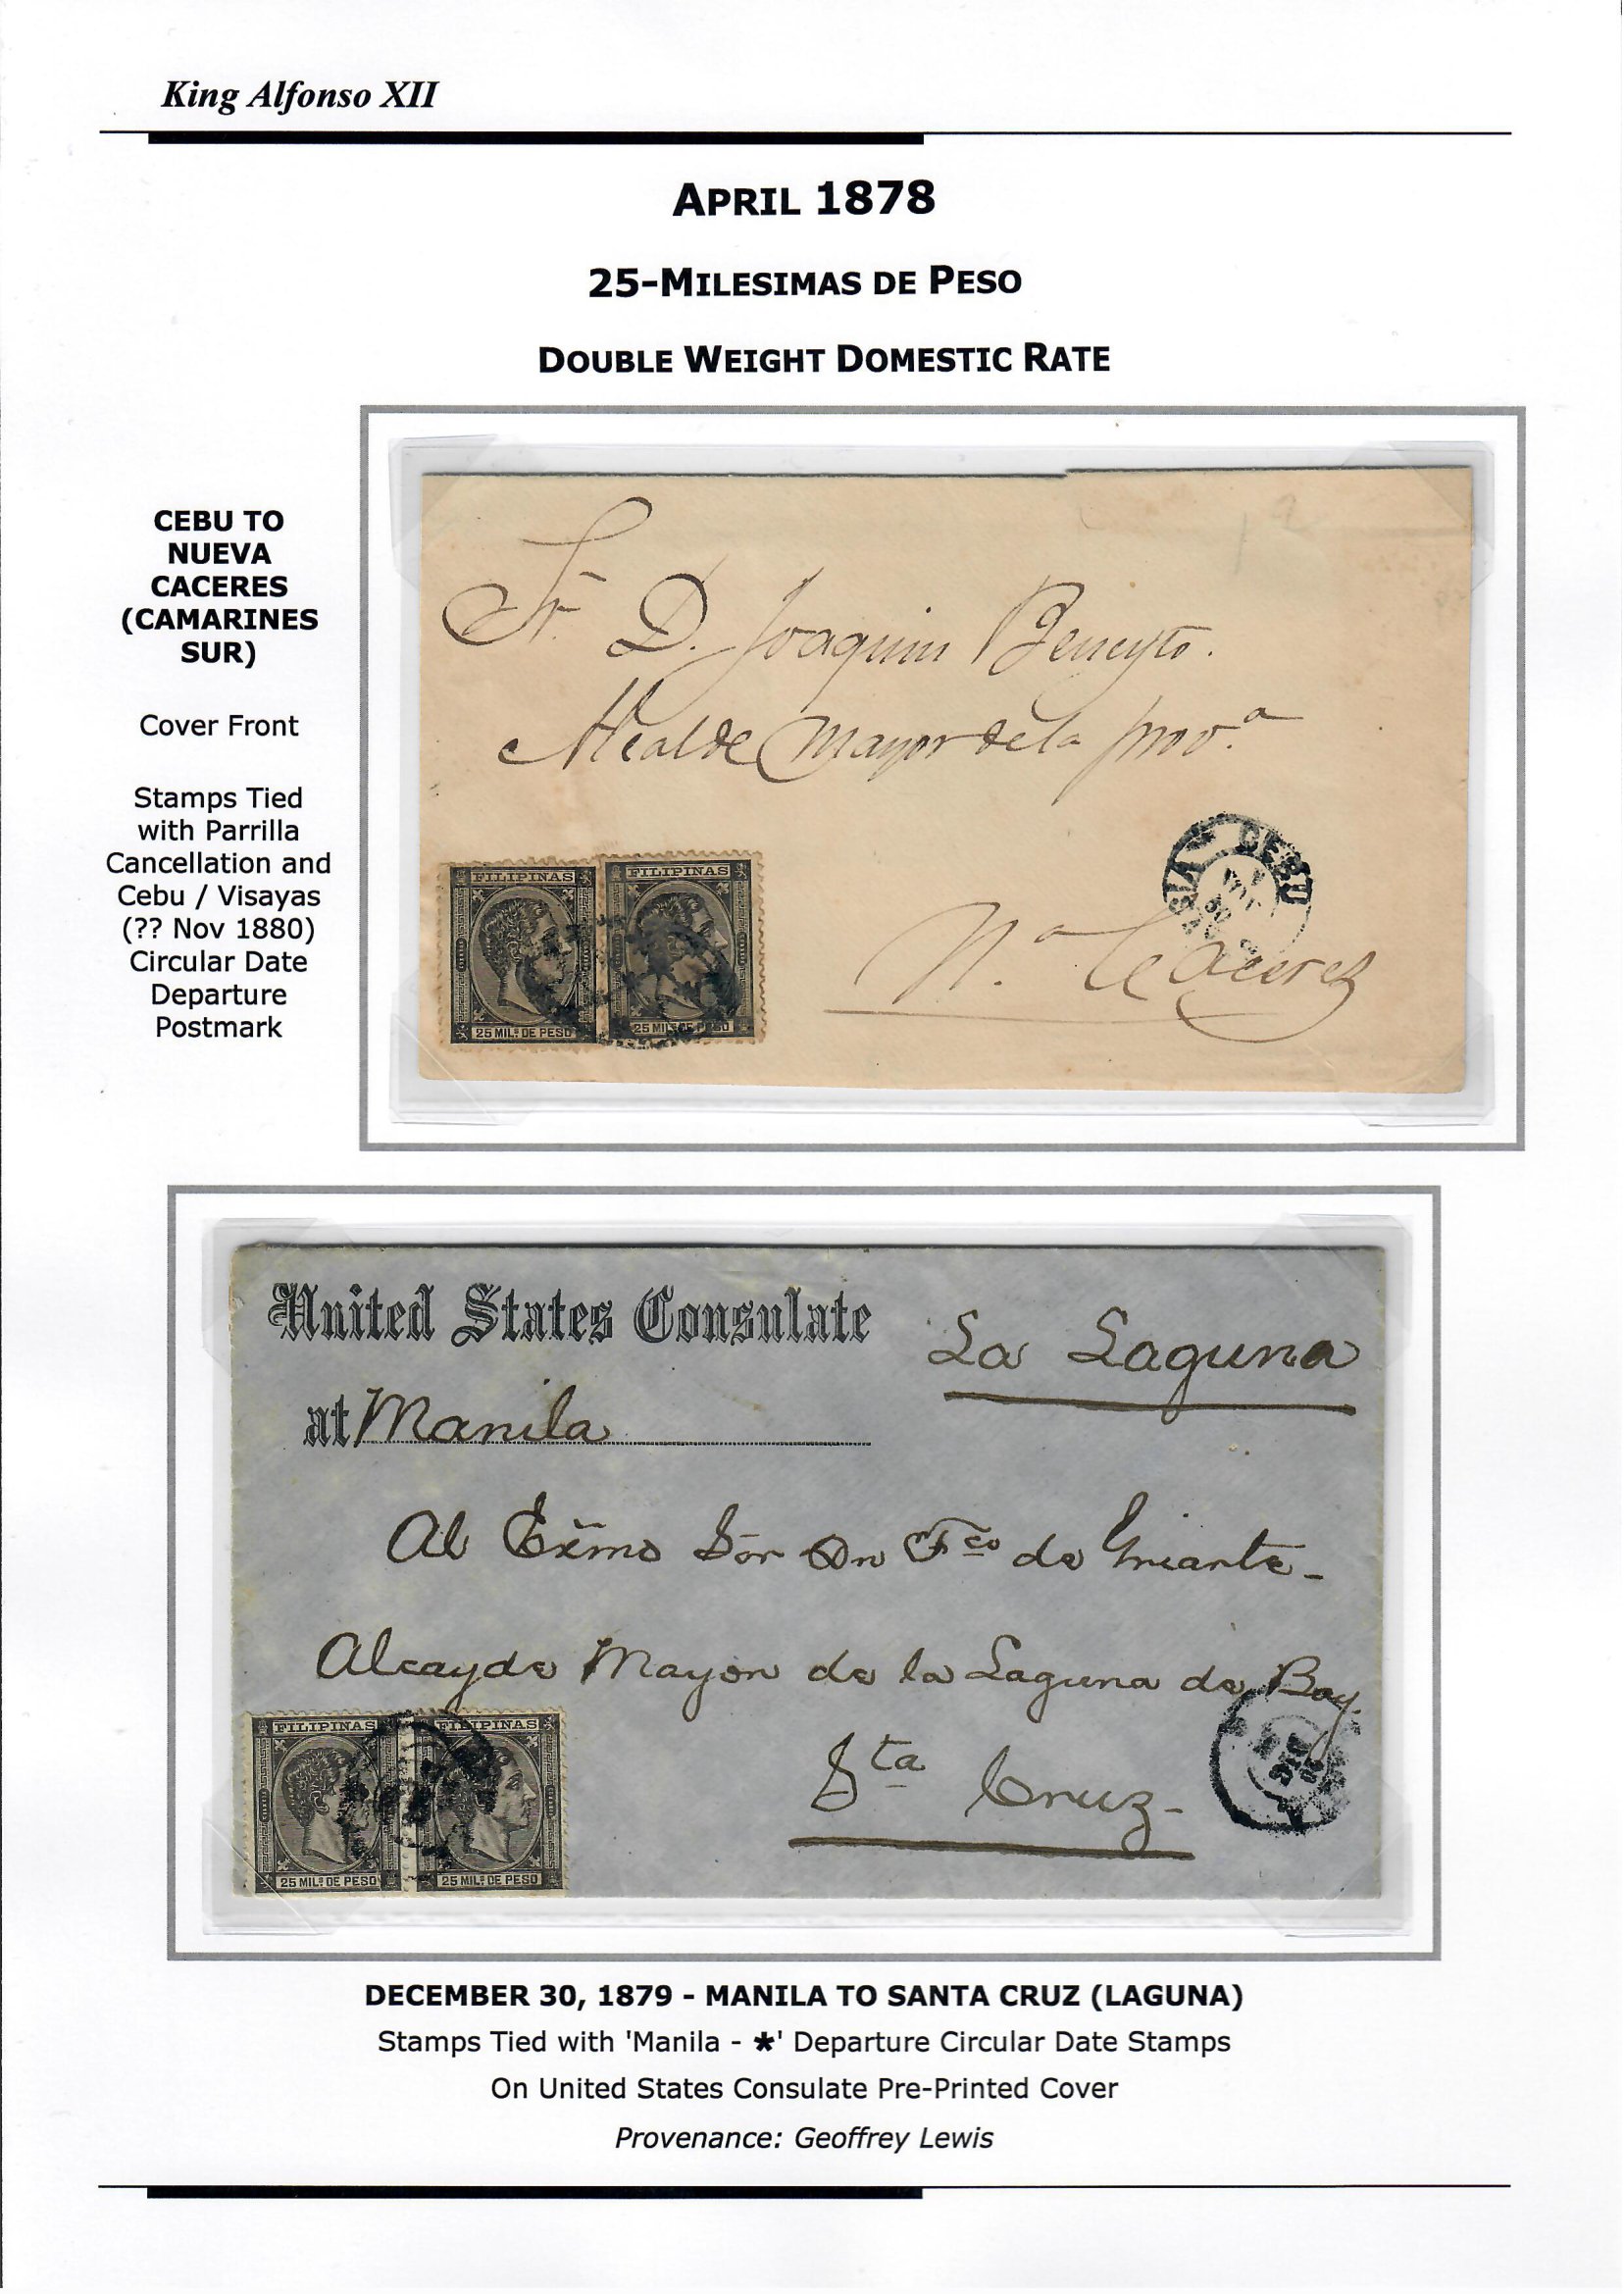 King Alfonso XII
APRIL 1878
25-MILESIMAS DE PESO
DOUBLE WEIGHT DOMESTIC RATE
CEBU TO
NUEVA
CACERES
(CAMARINES
SUR)
Cover Front
Stamps Tied
with Parrilla
Cancellation and
Cebu / Visayas
(?? Nov 1880)
Circular Date
Departure
Postmark
Sr. D. Joaquin Beneyto.
Alcalde Mayor de la prova.
CEBU
Na. Caceres
FILIPINAS
25 MILS. DE PESO
FILIPINAS
25 MILS. DE PESO
United States Consulate
at Manila
La Laguna
Al Exmo Sor Dn Fco de Yriarte-
Alcayde Mayor de la Laguna de Bay.
Sta Cruz-
FILIPINAS
25 MILS. DE PESO
FILIPINAS
25 MILS. DE PESO
DECEMBER 30, 1879 - MANILA TO SANTA CRUZ (LAGUNA)
Stamps Tied with 'Manila - *' Departure Circular Date Stamps
On United States Consulate Pre-Printed Cover
Provenance: Geoffrey Lewis